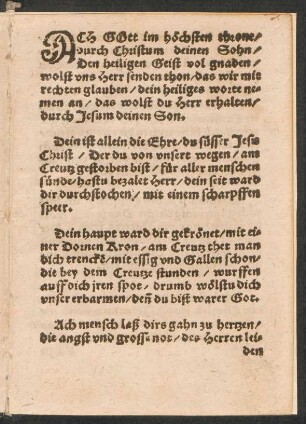 ACH GOtt im höchsten throne/
durch Christum deinen Sohn/
Den heiligen Geist vol gnaden/
wolst vns Herr senden thon/das wir mit
rechten glauben/dein heiliges worte ne-
men an/ das wolst du Herr erhalten/
durch Jesum deinen Son.
Dein ist allein die Ehre/du süsser Jesu
Christ/ Der du von vnsert wegen/am
Creutz gestorben bist/für aller menschen
sünde/hastu bezalet Herr/dein seit ward
dir durchstochen/mit einem scharpffen
speer.
Dein haupt ward dir gekrönet/mit ei-
ner Dornen Kron/am Creutz thet man
dich trencke/mit essig vnd Gallen schon/
die bey dem Creutze stunden/ wurffen
auff dich jren spot/ drumb wölstu dich
vnser erbarmen/deñ du bist warer Got.
Ach mensch laß dirs gahn zu hertzen/
die angst vnd grosse not/des Herren lei-
den